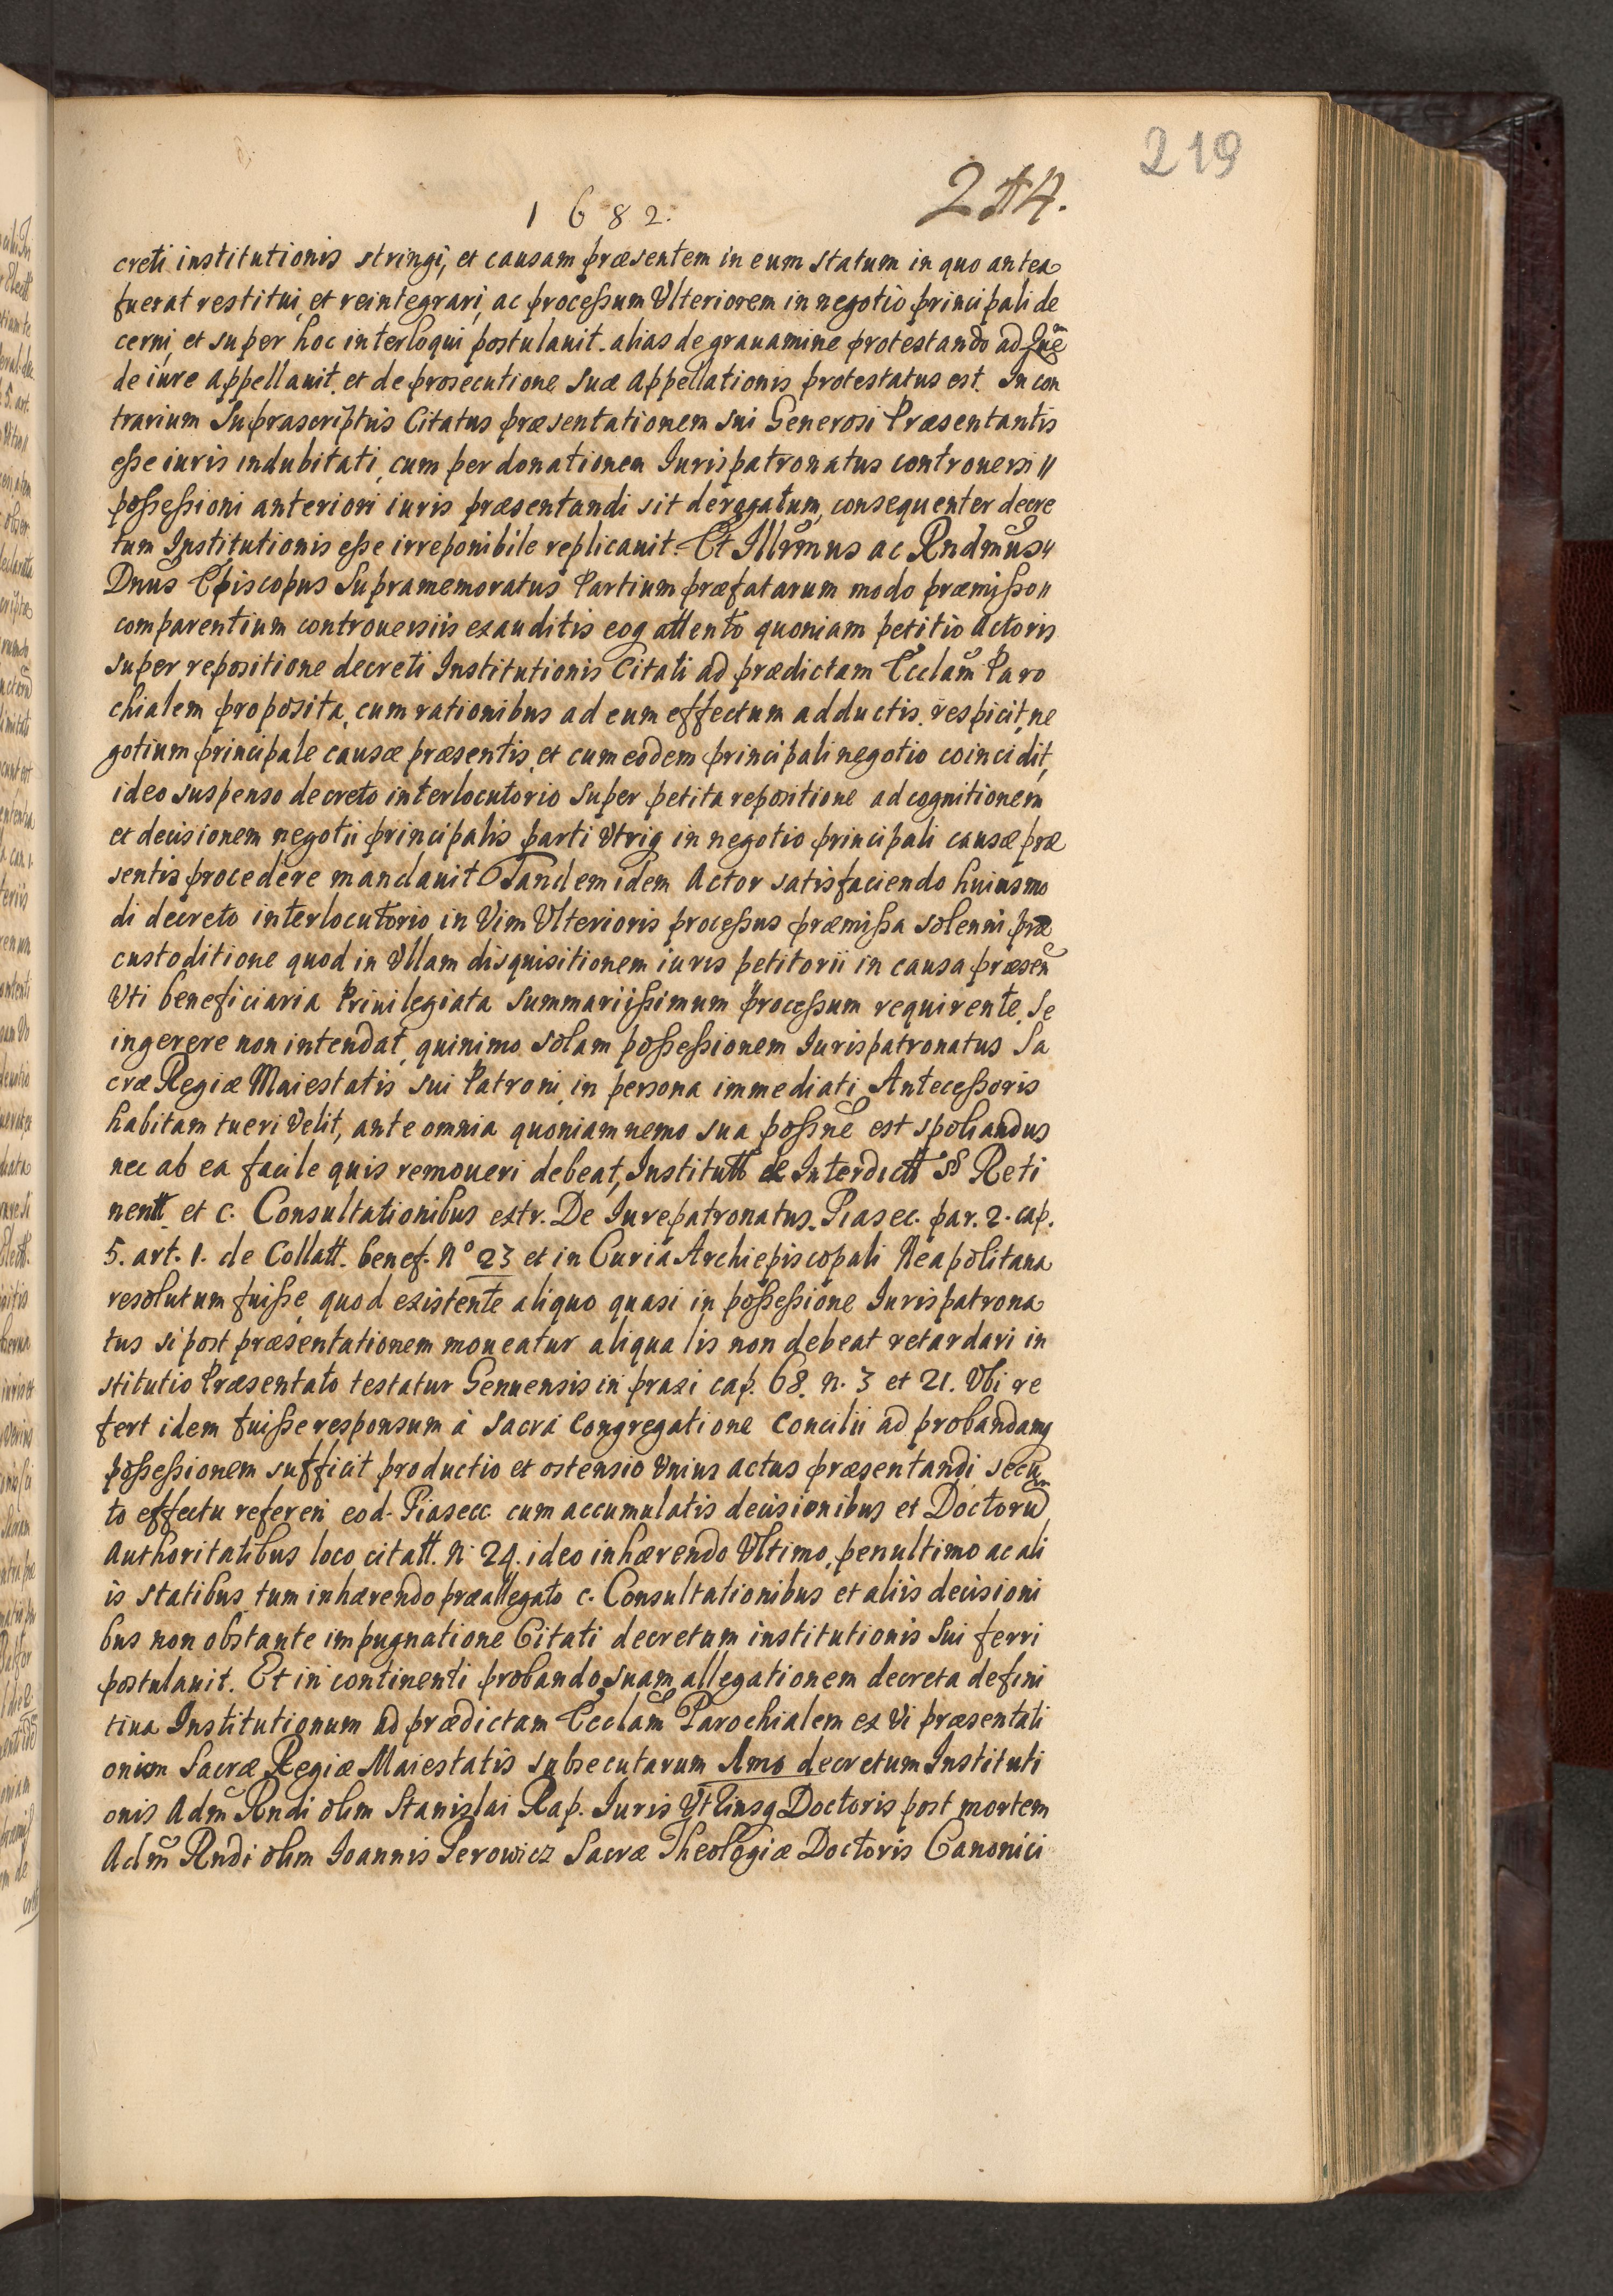 219
214.
1682.
creti institutionis stringi, et causam præsentem in eum statum in quo antea
fuerat restitui, et reintegrari, ac processum Ulteriorem in negotio principali de
cerni, et super hoc interloqui postulauit. alias de grauamine protestando ad quē
de iure appellauit. et de prosecutione suæ appellationis protestatus est. In con
trarium Suprascriptus Citatus præsentationem sui Generosi Præsentantis
esse iuris indubitati, cum per donationem Iurispatronatus controuersi
possessioni anteriori iuris præsentandi sit derogatum, consequenter decre
tum Institutionis esse irreponibile replicauit. Et Illrmus ac Rndmus
Dnus Episcopus Supramemoratus Partium præfatarum modo præmisso
comparentium controuersiis exauditis eoq attento quoniam petitio Actoris
super repositione decreti Institutionis Citati ad prædictam Ecclam Paro
chialem proposita, cum rationibus ad eum effectum adductis, respicit ne
gotium principale causæ præsentis, et cum eodem principali negotio coincidit,
ideo suspenso decreto interlocutorio super petita repositione ad cognitionem
et decisionem negotii principalis parti Utriq in negotio principali causæ præ
sentis procedere mandauit Tandem idem Actor satisfaciendo huiusmo
di decreto interlocutorio, in Vim Ulterioris processus præmissa solenni præ
custoditione quod in Ullam disquisitionem iuris petitorii in causa præsen
Uti beneficiaria Priuilegiata Summariissimum processum requirente, Se
ingerere non intendat, quinimo solam possessionem Iurispatronatus Sa
cræ Regiæ Maiestatis sui Patroni, in persona immediati Antecessoris
habitam tueri Velit, ante omnia quoniam nemo sua possne est spoliandus
nec ab ea facile quis remoueri debeat, Institutt de Interdictt §§ Reti
nentt et c. Consultationibus extr. De Iurepatronatus. Piasec. par. 2. cap.
5. art. 1. de Collatt. benef. No 23 et in Curia Archiepiscopali Neapolitana
resolutum fuisse, quod existente aliquo quasi in possessione Iurispatrona
tus si post præsentationem moueatur aliqua lis non debeat retardari in
stitutio Præsentato testatur Genuensis in praxi cap. 68. n. 3 et 21. Ubi re
fert idem fuisse responsum à Sacra Congregatione Concilii ad probandam
possessionem sufficit productio et ostensio Unius actus præsentandi, secu
to effectu referen eod. Piasecc. cum accumulatis decisionibus et Doctorum
Authoritatibus loco citatt. N. 24. ideo inhærendo Ultimo, penultimo ac ali
is statibus, tum inhærendo præallegato c. Consultationibus et aliis decisioni
bus non obstante impugnatione Citati decretum institutionis Sui ferri
postulauit. Et in continenti probando suam allegationem decreta defini
tiua Institutionum ad prædictam Ecclam Parochialem ex Vi præsentati
onum Sacræ Regiæ Maiestatis subsecutarum 1mo decretum Instituti
onis Adm Rndi olim Stanislai Rap. Iuris Utriusq Doctoris post mortem
Adm Rndi olim Ioannis Serowicz Sacræ Theologiæ Doctoris Canonici